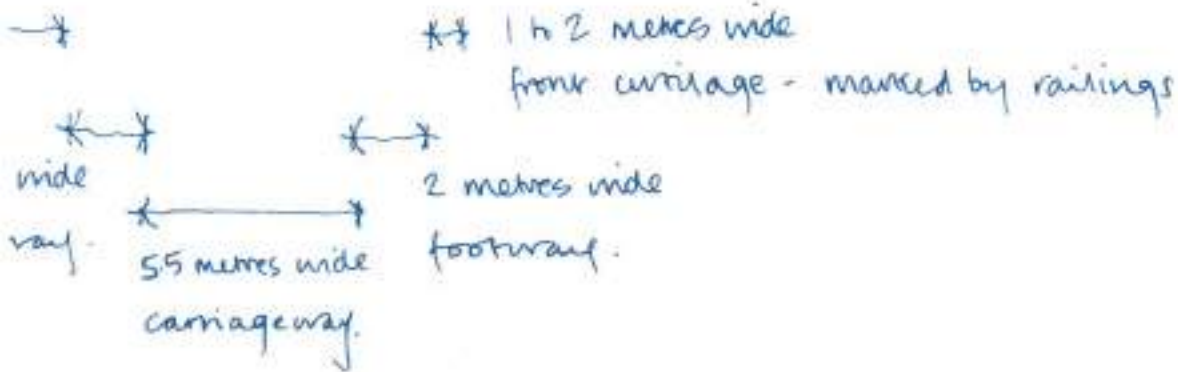 1 to 2 metres wide
front curtilage - marked by railings
wide
2 metres wide
way.
footway.
5.5 metres wide
carriageway.